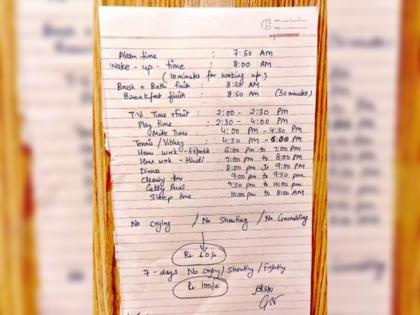 Alarm time : 7:50 AM
Wake-up-time : 8:00 AM
(10 minutes for waking up.)
Brush + Bath finish : 8:20 AM
Breakfast finish : 8:50 AM (30 minutes)
T.V. Time : 2:00 - 2:30 Pm
Play time : 2:30 - 4:00 Pm
Milk Time : 4:00 Pm - 4:30 Pm
Tennis / : 4:30 PM - 6:00 Pm
Home work - : 6:00 Pm to 7:00 Pm
Home work - Hindi : 7:00 Pm to 8:00 PM
Dinner : 8:00 Pm to 9:00 PM
time : 9:00 Pm to 9:30 pm
: 9:30 pm to 10:00 pm
Sleep time : 10:00 pm to 8:00 AM
No Crying / No Shouting / No Grumbling
Rs 10/-
7-days No Crying / Shouting / Fighting
Rs 100/-